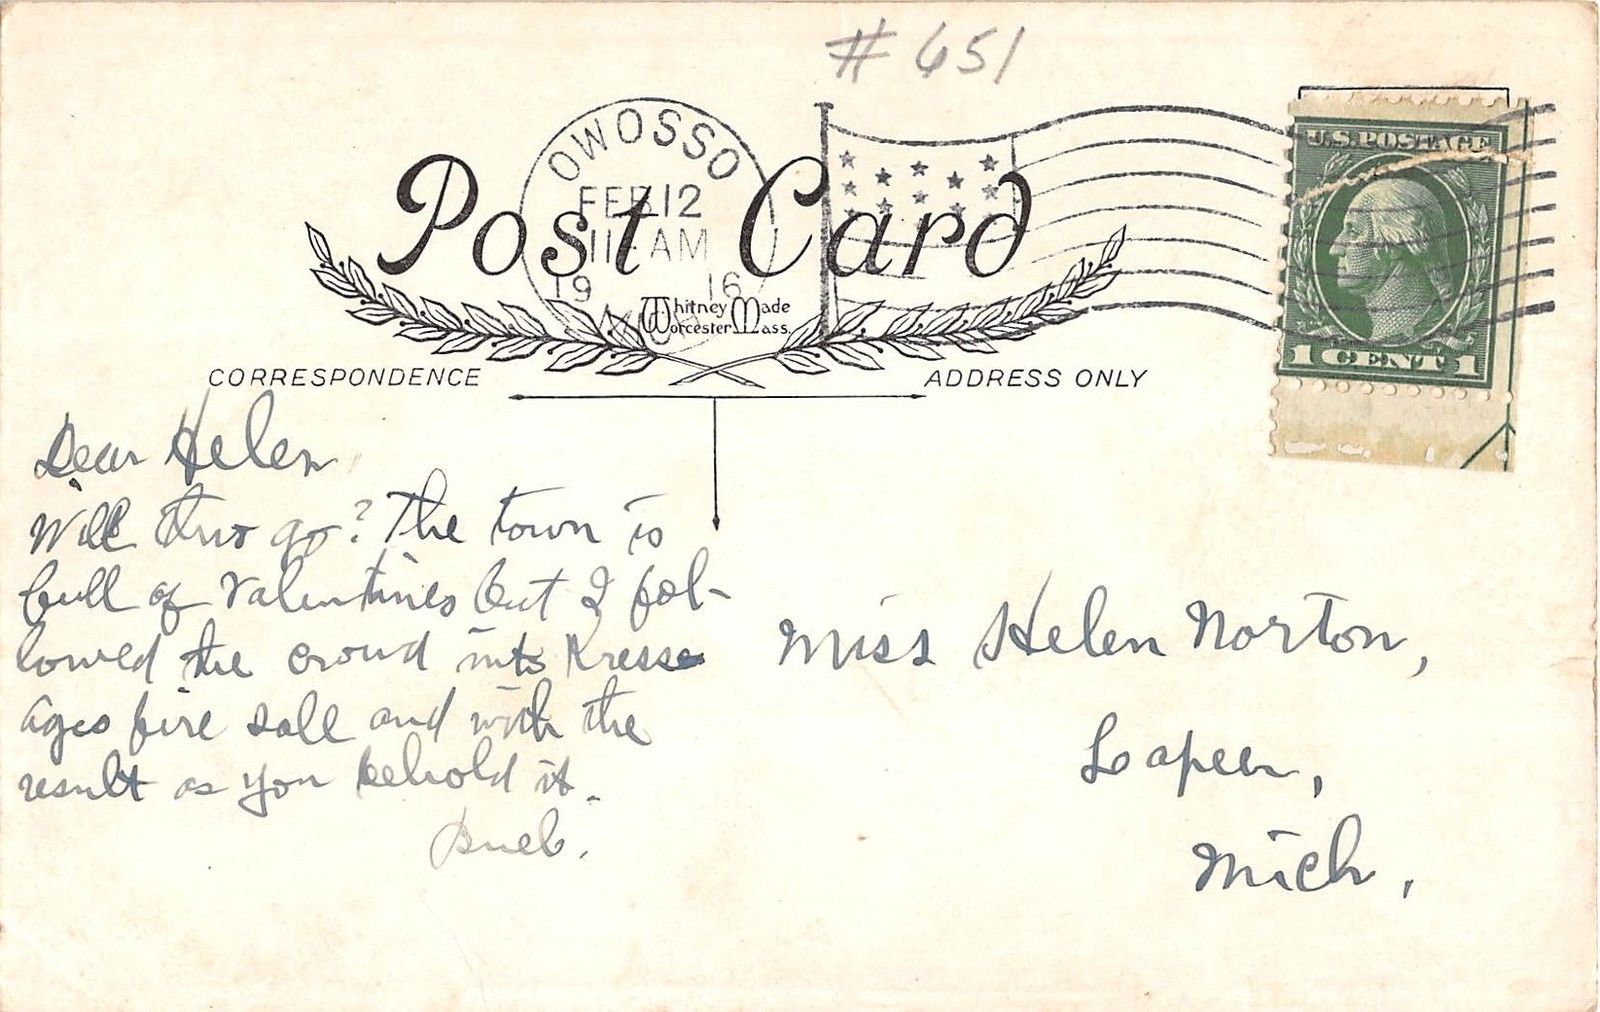 # 651
OWOSSO
FEB 12
11 AM
19 16
MICH.
U.S. POSTAGE
1 CENT 1
Post Card
Whitney Made
Worcester Mass.
CORRESPONDENCE
ADDRESS ONLY
Dear Helen
Will this go? The town is
full of valentines but I fol-
lowed the crowd into Kresse
ages fire sall and with the
result as you behold it.
Miss Helen Norton,
Lapeer,
Mich.